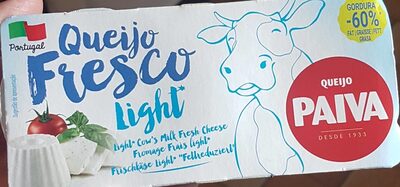 Portugal
Queijo
Fresco
Light*
Light* Cow's Milk Fresh Cheese
Fromage Frais light*
Frischkäse light* "Fettreduziert"
GORDURA
-60%
FAT | GRAISSE | FETT
GRASA
QUEIJO
PAIVA
DESDE 1933
Sugestão de apresentação